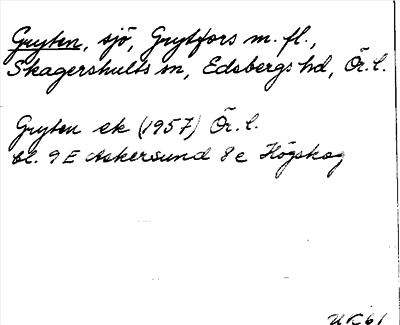 Gryten, sjö, Grytfors m. fl.,
Skagershults sn, Edsbergs hd, Ör. l.
Gryten ek (1957) Ör. l.
bl. 9 E Askersund 8 e Högskog